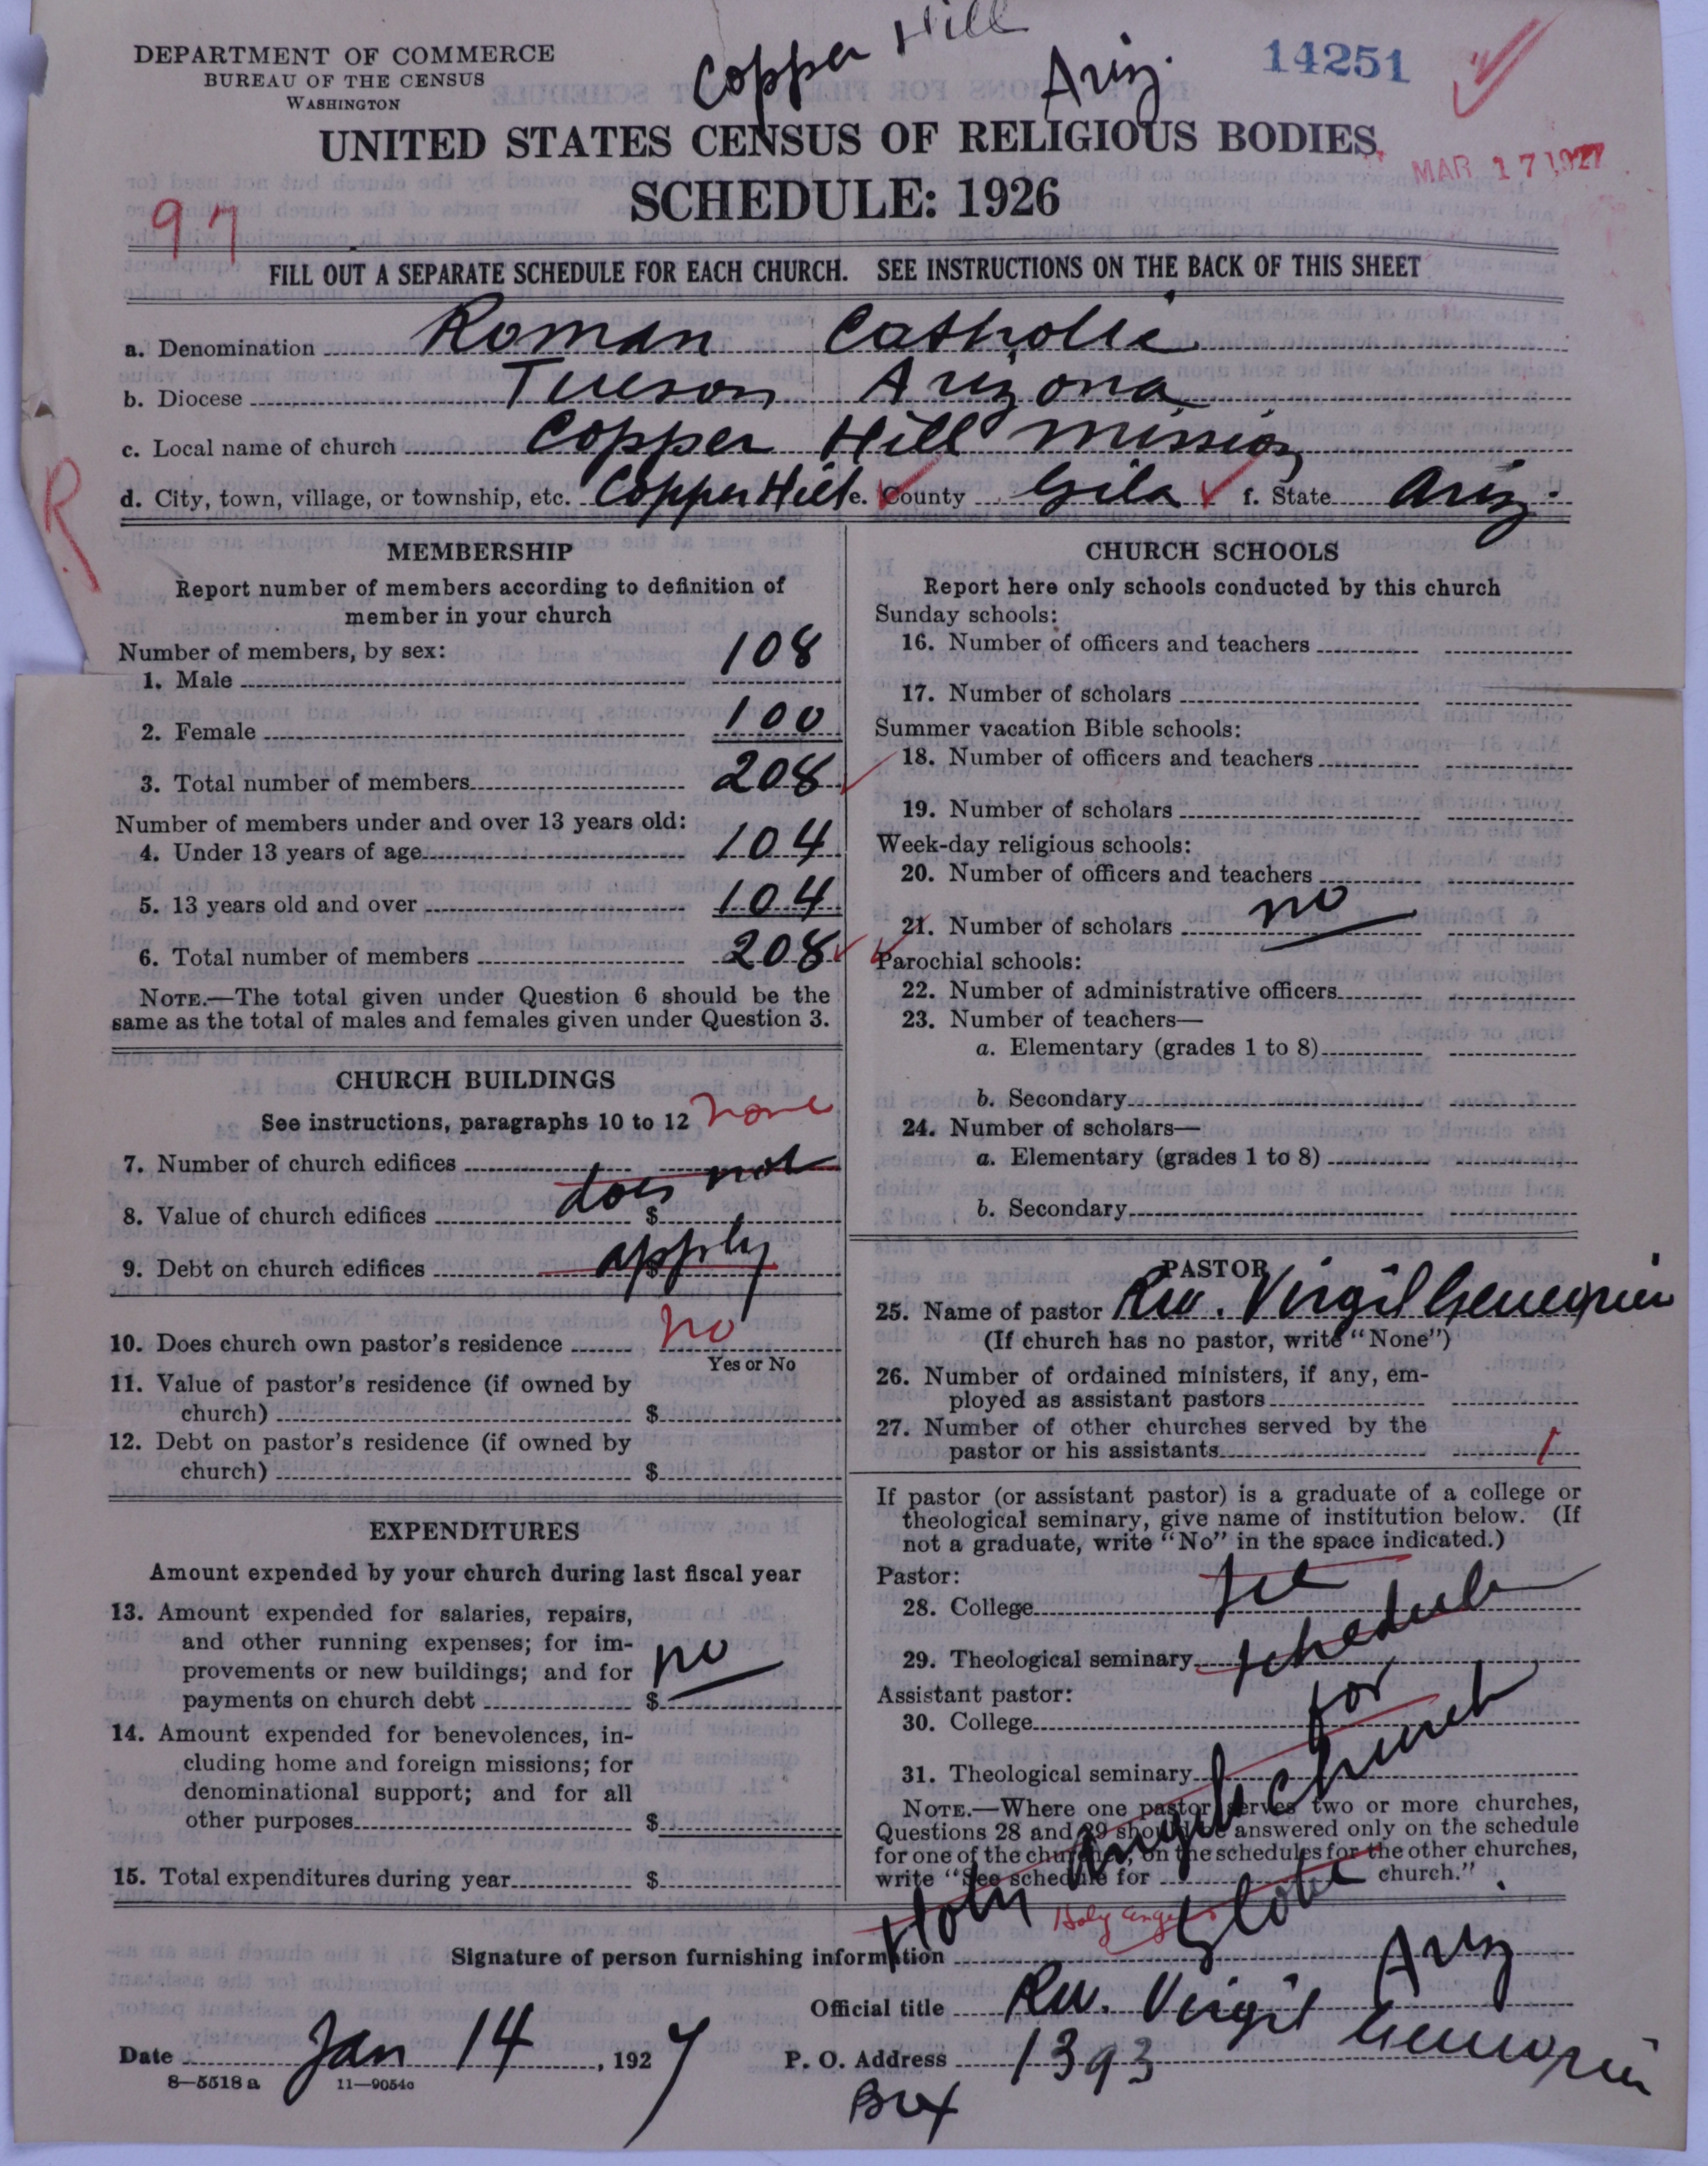 Copper Hill
Ariz.
14251
DEPARTMENT OF COMMERCE
BUREAU OF THE CENSUS
WASHINGTON
UNITED STATES CENSUS OF RELIGIOUS BODIES
MAR 17 1927
SCHEDULE: 1926
97
FILL OUT A SEPARATE SCHEDULE FOR EACH CHURCH. SEE INSTRUCTIONS ON THE BACK OF THIS SHEET
a. Denomination Roman Catholic
b. Diocese Tucson Arizona
c. Local name of church Copper Hill Mission
d. City, town, village, or township, etc. Copper Hill e. County Gila f. State Ariz.
R
MEMBERSHIP
Report number of members according to definition of
member in your church
Number of members, by sex:
1. Male 108
2. Female 100
3. Total number of members 208
Number of members under and over 13 years old:
4. Under 13 years of age 104
5. 13 years old and over 104
6. Total number of members 208
NOTE.—The total given under Question 6 should be the
same as the total of males and females given under Question 3.
CHURCH BUILDINGS
See instructions, paragraphs 10 to 12 none
7. Number of church edifices
does not
8. Value of church edifices $
apply
9. Debt on church edifices $
10. Does church own pastor's residence no
Yes or No
11. Value of pastor's residence (if owned by
church) $
12. Debt on pastor's residence (if owned by
church) $
EXPENDITURES
Amount expended by your church during last fiscal year
13. Amount expended for salaries, repairs,
and other running expenses; for im-
provements or new buildings; and for no
payments on church debt $
14. Amount expended for benevolences, in-
cluding home and foreign missions; for
denominational support; and for all
other purposes $
15. Total expenditures during year $
CHURCH SCHOOLS
Report here only schools conducted by this church
Sunday schools:
16. Number of officers and teachers
17. Number of scholars
Summer vacation Bible schools:
18. Number of officers and teachers
19. Number of scholars
Week-day religious schools:
20. Number of officers and teachers
21. Number of scholars no
Parochial schools:
22. Number of administrative officers
23. Number of teachers—
a. Elementary (grades 1 to 8)
b. Secondary
24. Number of scholars—
a. Elementary (grades 1 to 8)
b. Secondary
PASTOR
25. Name of pastor Rev. Virgil
(If church has no pastor, write "None")
26. Number of ordained ministers, if any, em-
ployed as assistant pastors
27. Number of other churches served by the
pastor or his assistants 1
If pastor (or assistant pastor) is a graduate of a college or
theological seminary, give name of institution below. (If
not a graduate, write "No" in the space indicated.)
Pastor:
28. College see
29. Theological seminary schedule
Assistant pastor: for
30. College
31. Theological seminary
Holy Angels Church
NOTE.—Where one pastor serves two or more churches,
Questions 28 and 29 should be answered only on the schedule
for one of the churches; on the schedules for the other churches,
write "See schedule for church."
Holy Angels
Globe
Ariz
Signature of person furnishing information
Official title Rev. Virgil
Date Jan 14, 1927
P. O. Address 1393
Box
8—5518 a 11—9054a